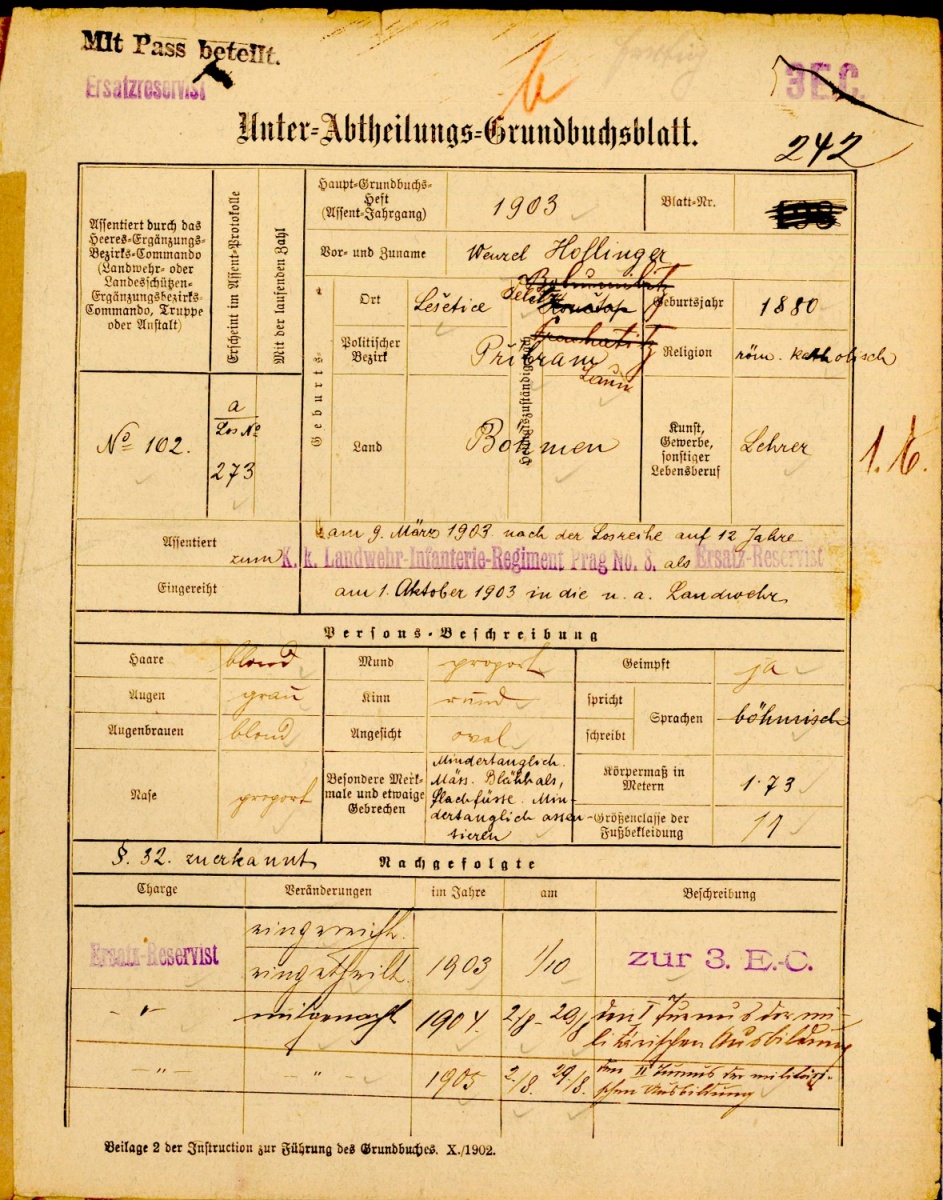 Mit Pass beteilt.
Ersatzreservist
3 E.C.
Unter-Abtheilungs-Grundbuchsblatt.
242
Assentiert durch das
Heeres-Ergänzungs-
Bezirks-Commando
(Landwehr- oder
Landesschützen-
Ergänzungsbezirks-
Commando, Truppe
oder Anstalt)
Erscheint im Assent-Protokolle
Mit der laufenden Zahl
Haupt-Grundbuchs-
Heft
(Assent-Jahrgang)
1903
Blatt-Nr.
Vor- und Zuname
Wenzel Hoflinger
Geburts-
Ort
Lešetice
Heimatszuständigkeit
Geburtsjahr
1880
Politischer
Bezirk
Příbram
Laun
Religion
röm. katholisch
No 102.
a
Los No
273
Land
Böhmen
Kunst,
Gewerbe,
sonstiger
Lebensberuf
Lehrer
Assentiert
am 9. März 1903 nach der Losreihe auf 12 Jahre
zum K. k. Landwehr-Infanterie-Regiment Prag No. 8. als Ersatz-Reservist
Eingereiht
am 1. Oktober 1903 in die n. a. Landwehr
Persons-Beschreibung
Haare blond Mund proport Geimpft ja
Augen grau Kinn rund spricht
schreibt
Sprachen böhmisch
Augenbrauen blond Angesicht oval
Nase proport
Besondere Merk-
male und etwaige
Gebrechen
Mindertauglich.
Mäss. Blähhals,
Plachfüsse. Min-
dertauglich assen-
tieren
Körpermaß in
Metern
1·73
Größenclasse der
Fußbekleidung
11
§. 32. zuerkannt Nachgefolgte
Charge Veränderungen im Jahre am Beschreibung
Ersatz-Reservist
eingereiht.
eingetheilt. 1903 1/10 zur 3. E.-C.
-"- mitgemacht 1904. 2/8 - 29/8 den I Turnus der mi-
litärischen Ausbildung
-"- -"- 1905 2./8. 29./8. den II Turnus der militäri-
schen Ausbildung
Beilage 2 der Instruction zur Führung des Grundbuches. X./1902.